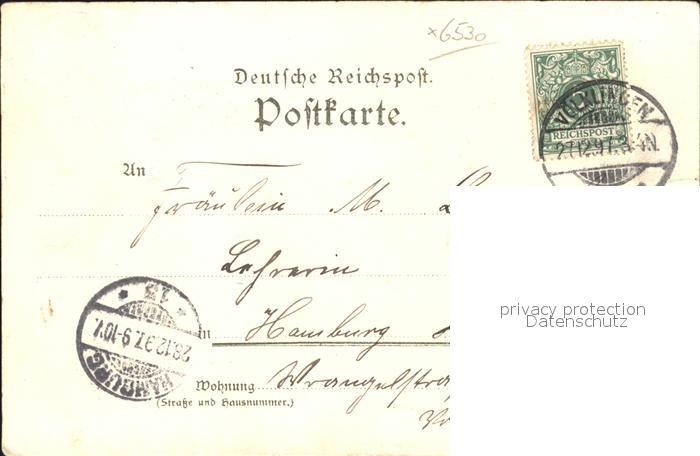 ×6530
Deutsche Reichspost.
Postkarte.
VÖLKLINGEN
27.12.97.
REICHSPOST
An
Fräulein M.
Lehrerin
in Hamburg
Wohnung Wrangelstra
(Straße und Hausnummer.)
HAMBURG
28.12.97. 9-10V.
privacy protection
Datenschutz